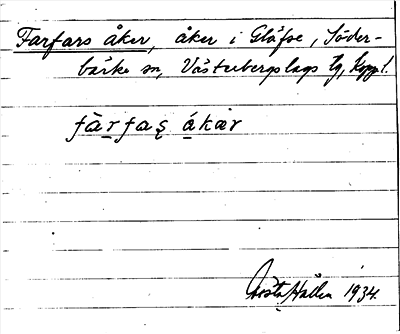 Farfars åker, åker i Gläfse, Söder-
bärke sn, Västerbergslags tg, Kopp. l.
fàrfas ákær
Gösta Hallin 1934.